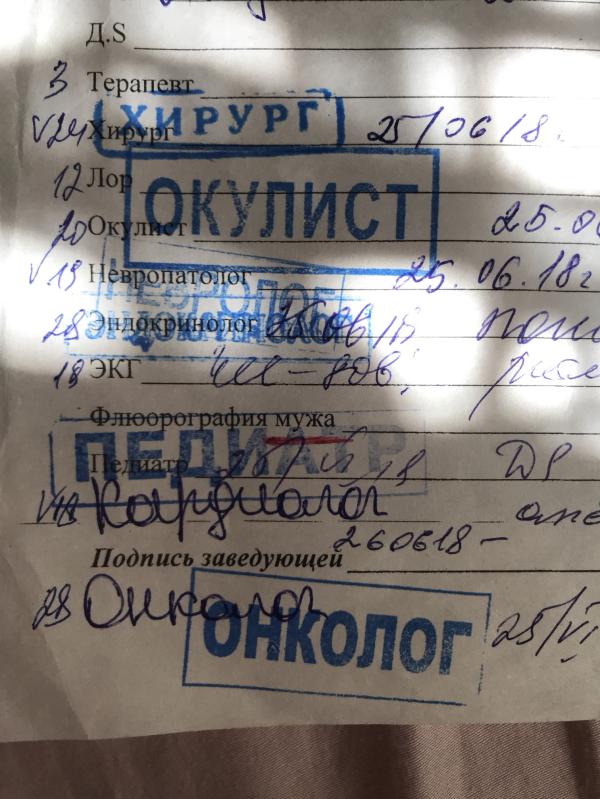 Д.S
3 Терапевт
ХИРУРГ
V24 Хирург 25/06/18.
12 Лор
ОКУЛИСТ
20 Окулист 25.06
V19 Невропатолог 25.06.18г
НЕВРОЛОГ
28 Эндокринолог 25 06/18
ЭНДОКРИНОЛОГ
18 ЭКГ
Флюорография мужа
ПЕДИАТР
Педиатр DS
Кардиолог
260618 –
Подпись заведующей
28 Онколог
ОНКОЛОГ 25/VI